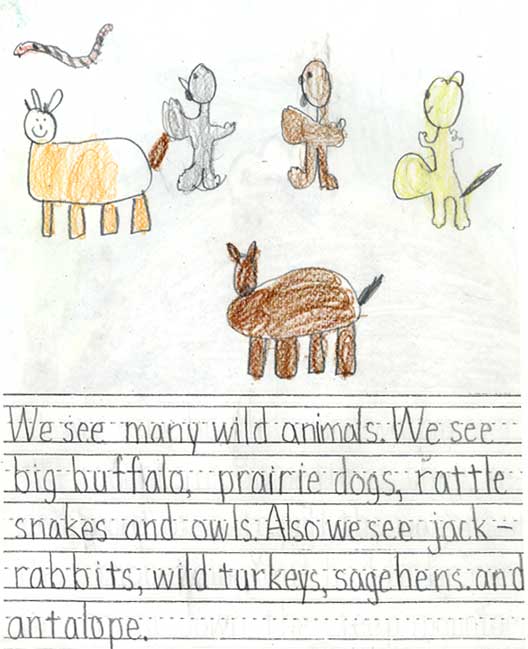 We see many wild animals. We see
big buffalo, prairie dogs, rattle
snakes and owls. Also we see jack-
rabbits, wild turkeys, sagehens. and
antalope.